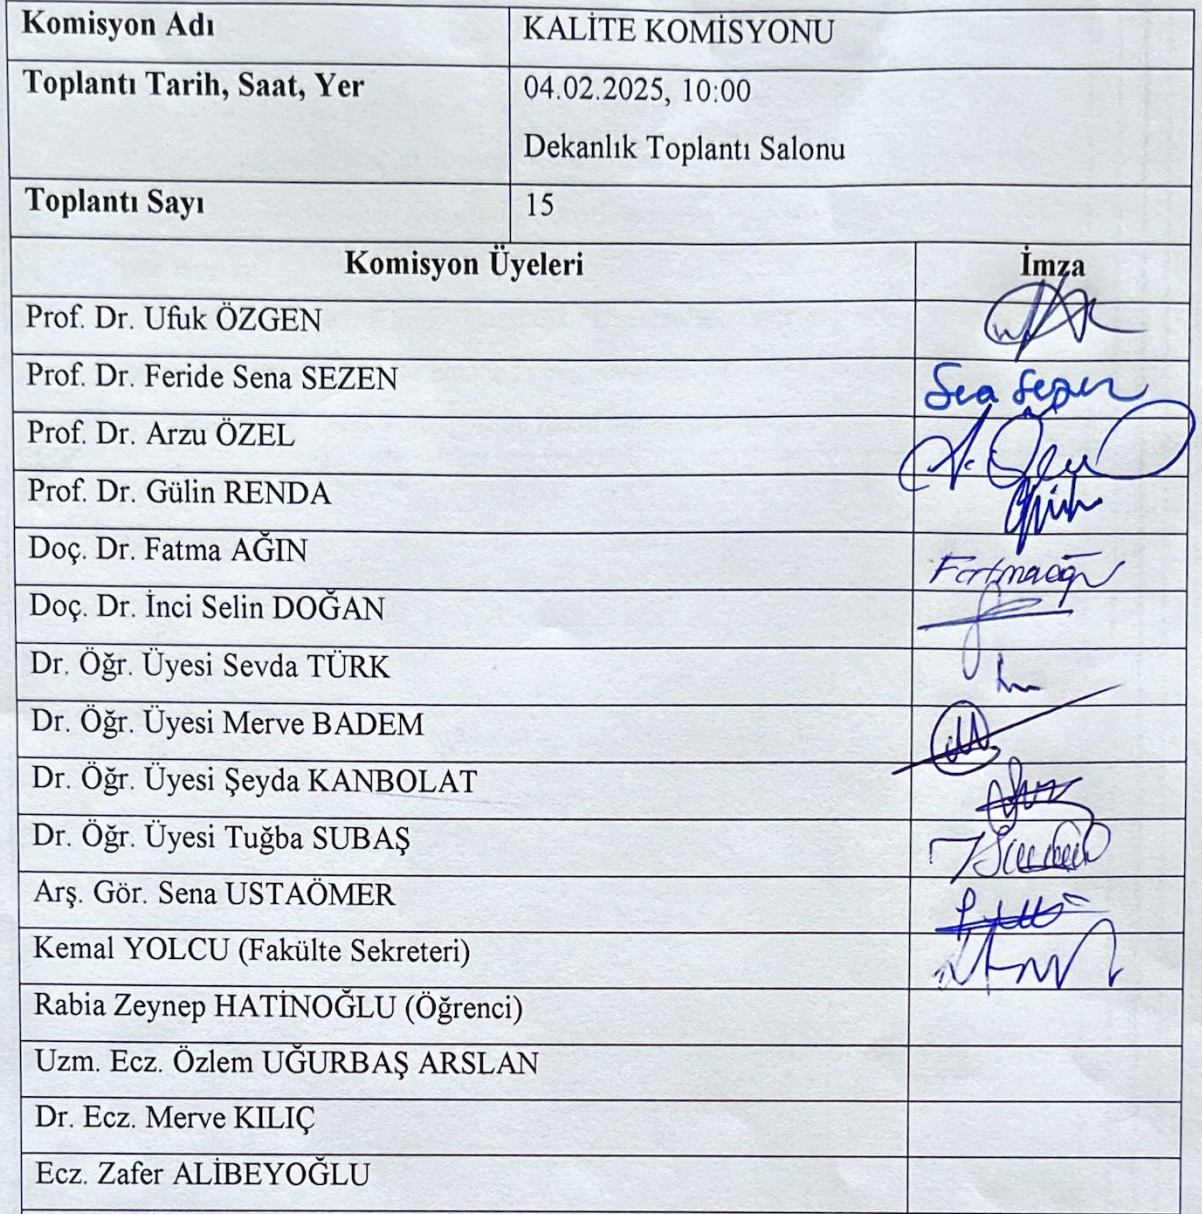 Komisyon Adı KALİTE KOMİSYONU
Toplantı Tarih, Saat, Yer 04.02.2025, 10:00
Dekanlık Toplantı Salonu
Toplantı Sayı 15
Komisyon Üyeleri İmza
Prof. Dr. Ufuk ÖZGEN
Prof. Dr. Feride Sena SEZEN
Prof. Dr. Arzu ÖZEL
Prof. Dr. Gülin RENDA
Doç. Dr. Fatma AĞIN
Doç. Dr. İnci Selin DOĞAN
Dr. Öğr. Üyesi Sevda TÜRK
Dr. Öğr. Üyesi Merve BADEM
Dr. Öğr. Üyesi Şeyda KANBOLAT
Dr. Öğr. Üyesi Tuğba SUBAŞ
Arş. Gör. Sena USTAÖMER
Kemal YOLCU (Fakülte Sekreteri)
Rabia Zeynep HATİNOĞLU (Öğrenci)
Uzm. Ecz. Özlem UĞURBAŞ ARSLAN
Dr. Ecz. Merve KILIÇ
Ecz. Zafer ALİBEYOĞLU